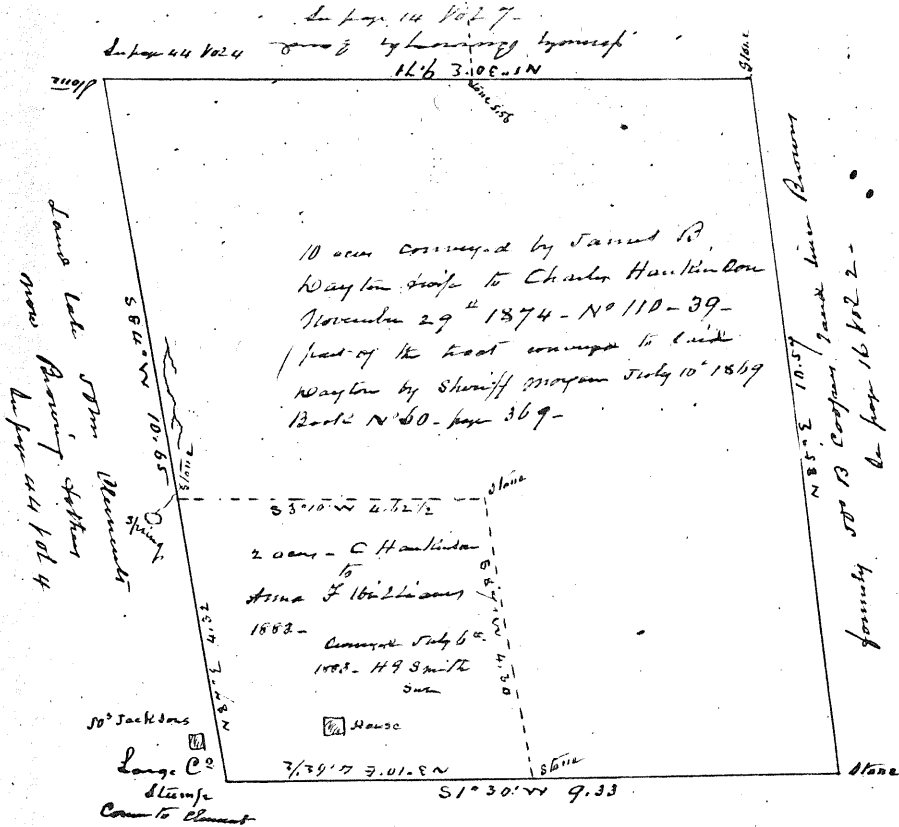 See page 14 Vol 7-
See page 44 Vol 4 formerly Browning's Land
N1°30'E 9.71
Stone
Stone
Stone 5.56
10 acres conveyed by James B
Dayton & wife to Charles Hankinson
November 29th 1874 - No 110 - 39 -
part of the tract conveyed to said
Dayton by Sheriff Morgan July 10th 1869
Book No 60 - page 369 -
S84°W 10.65
Stone
Spring
Land late John Clements
now Browning & others
See page 44 Vol 4
N85E 10.59
formerly B Coopers land since Browns
See page 16 Vol 2 -
S3°10'W 4.62½
Stone
2 acres - C Hankinson
to
Anna F Williams
1883 -
Conveyed July 6th
1883 - H G Smith
Sur
S84°W 4.30
N84°E 4.32
House
Jacksons
Large
Stump
Corner to Clement
N3°10'E 4.62½
Stone
S1°30'W 9.33
Stone